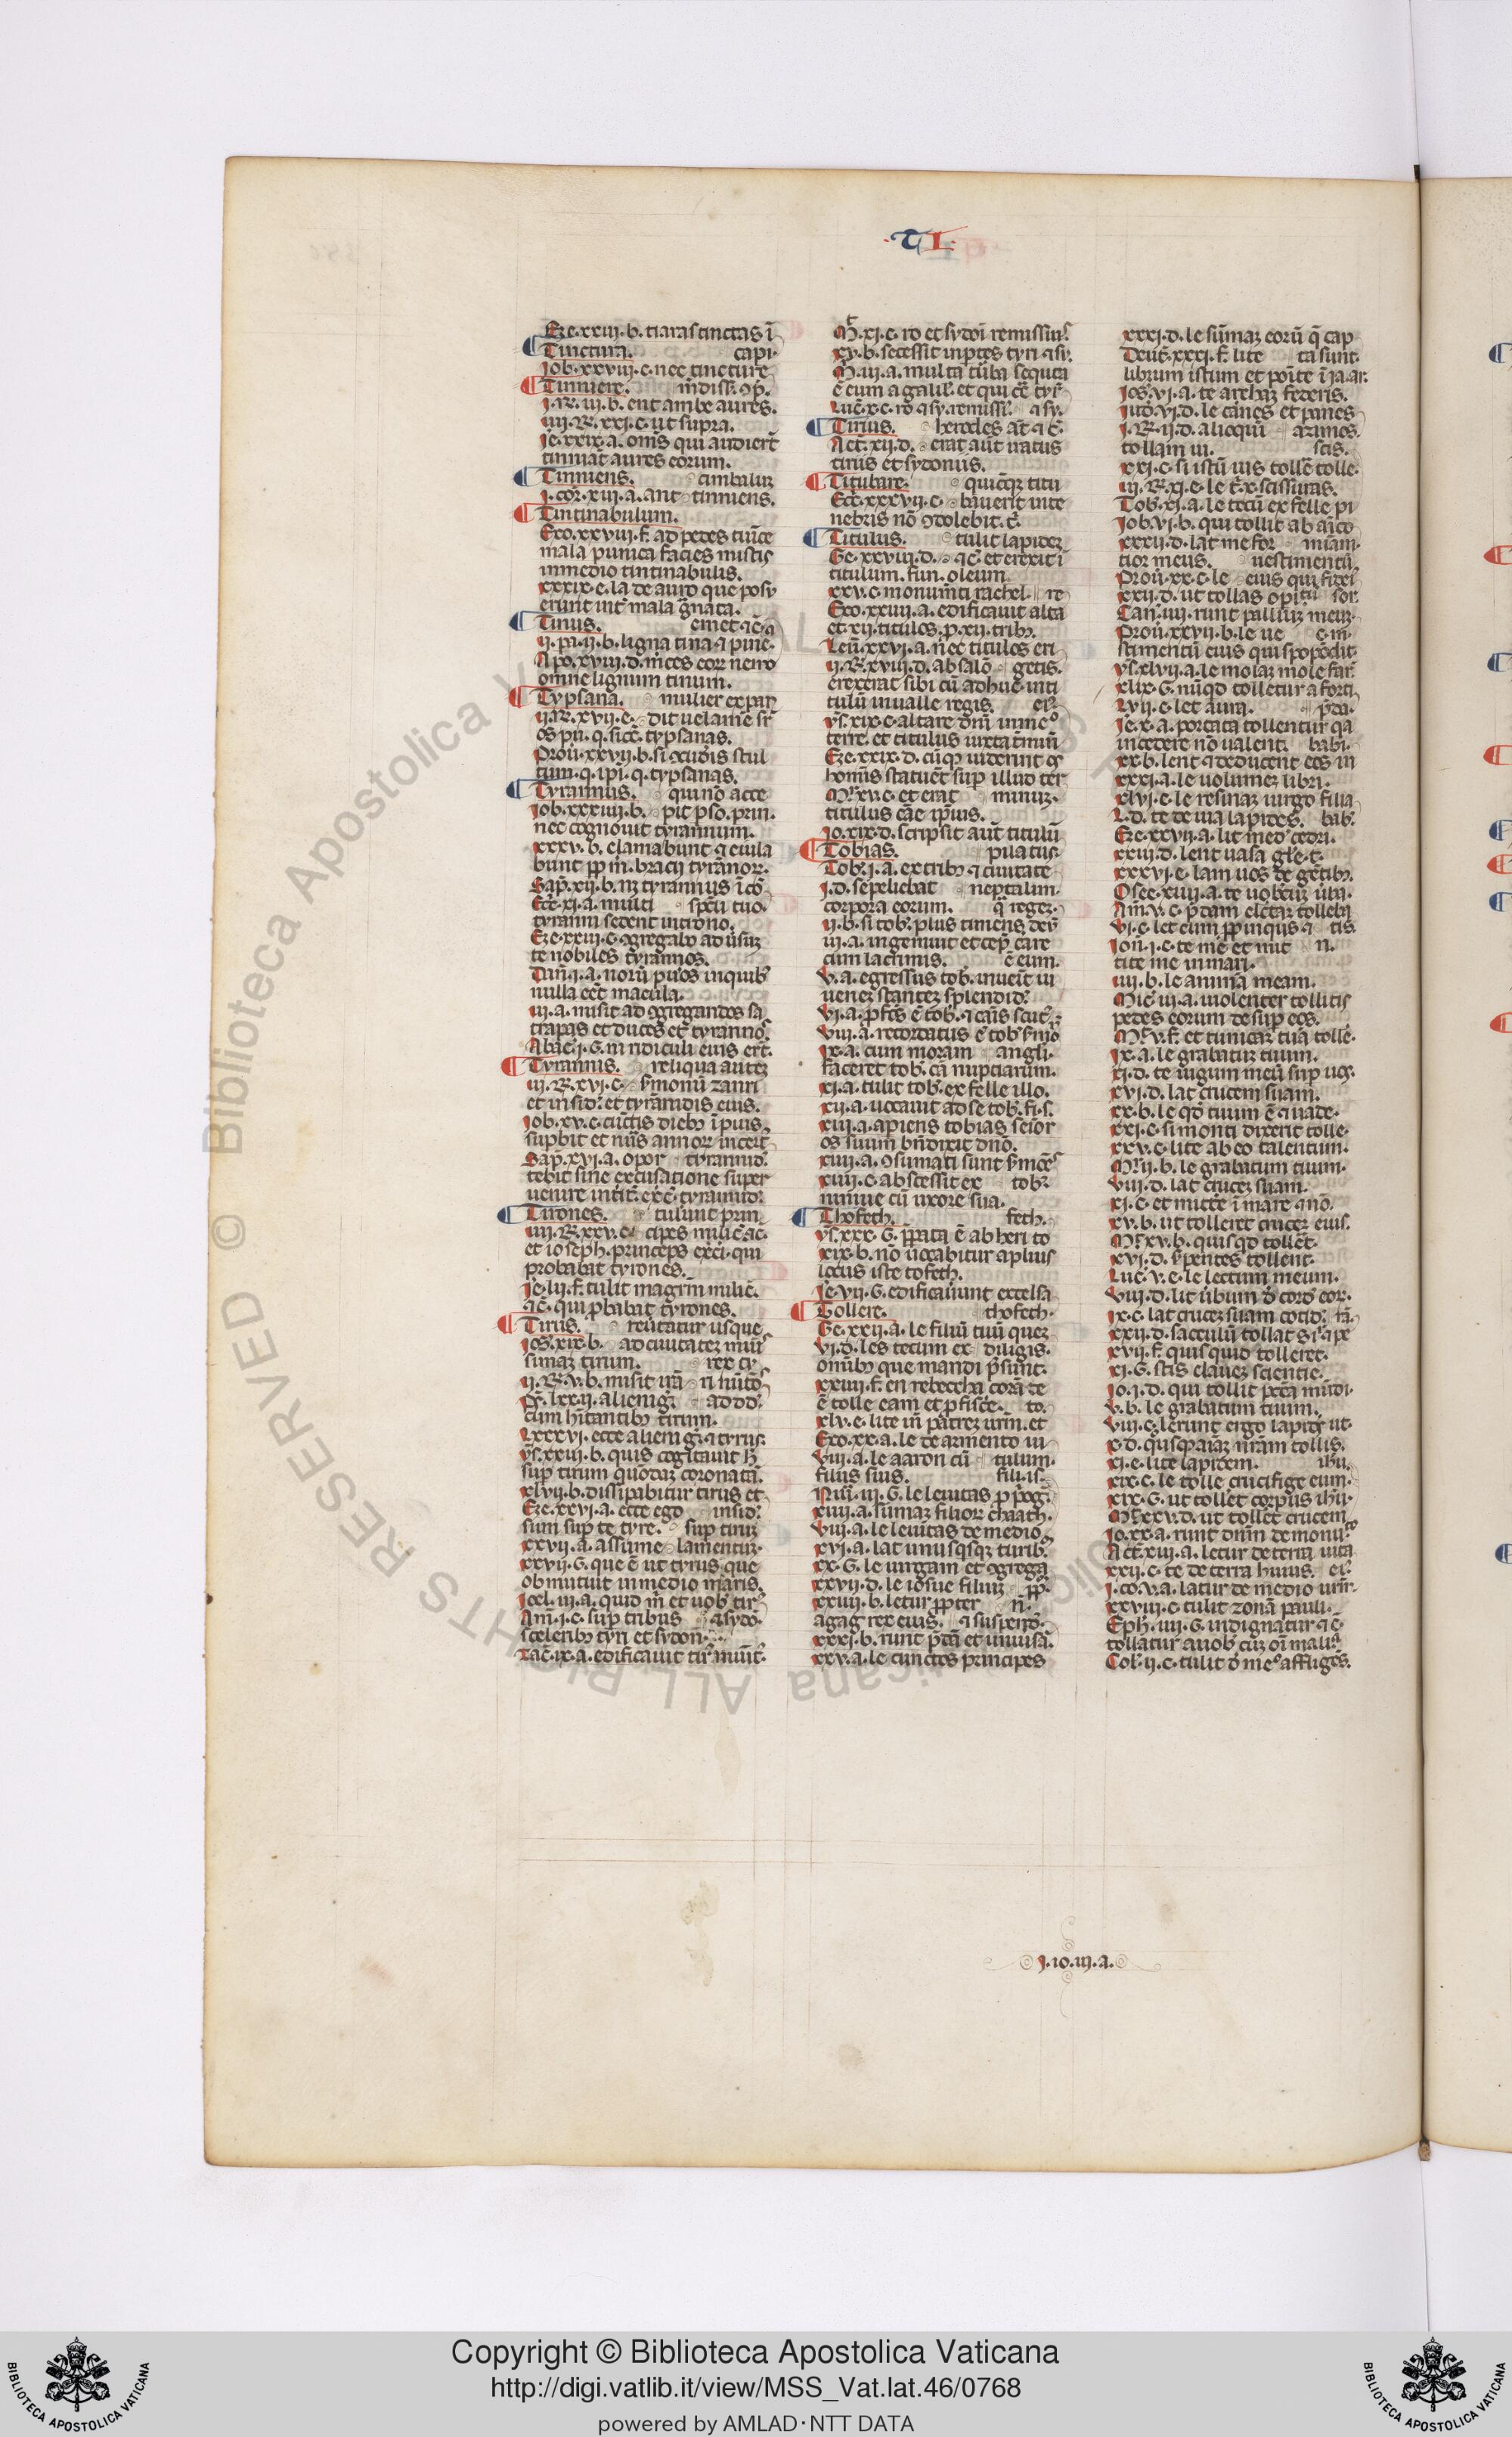 T I
Eze.xxiii.b. tiaras tinctas ī
Tinctura. capi.
Iob.xxviii.c. nec tincture
Tinnire. mdiss. ꝯp̄.
i.R.iii.b. ent ambe aures.
iiii.R.xxi.c. ut supra.
ie.xix.a. oms qui audiert̄
tinniāt aures eorum.
Tinniens. cimbaluʒ
i.cor̄.xiii.a. aut tinniens.
Tintinabulum.
Exo.xxviii.f. ad pedes tunice
mala punica facies mistis
in medio tintinabulis.
xxxix.e. la de auro que posu
erunt int̄ mala ḡnata.
Tinus. emet ⁊c̄ ⁊
ii.pa.ii.b. ligna tina ⁊ pine.
Apo.xviii.d. m̄ces eoꝝ nemo
omne lignum tinum.
Typsana. mulier expan
ii.R.xvii.e. dit uelam̄e sr̄
os pu. q. sicc̄. typsanas.
Prou.xxvii.b. si ꝯtuđis stul
tum. q. ipi. q. typsanas.
Tyrannus. qui nō acce
Iob.xxxiiii.b. pit ꝑso. prin.
nec cognouit tyrannum.
xxxv.b. clamabunt ⁊ eiula
bunt ꝓp m̄. bracij tyrānoꝝ.
Sap̄.xii.b. nʒ tyrannus ī cō
Ecc̄.xi.a. multi spc̄u tuo.
tyranni sedent in trono.
Eze.xxiii.c. ꝯgregabo aduersuʒ
te nobiles tyrannos.
Dan̄.i.a. noꝝ pu̾os in quibꝰ
nulla eēt macula.
iii.a. misit ad ꝯgregandos sa
trapas et duces et tyranno᷒
Abac̄.i.G. in ridiculi eius ert̄.
Tyrannis. reliqua auteʒ
iii.R.xvi.c. ẜmonū zanri
et insiđ et tyrānidis eius.
Iob.xv.c. cūctis diebꝰ ī pius
supbit et nūs annoꝝ incert̄
Sap̄.xvi.a. opor tyranniđ.
tebit sine excusatione super
uenire intit̄. exc̄. tyranniđ.
Tirones. tulerunt prin
iiii.R.xxv.e. cipes milic̄ ⁊c̄.
et ioseph. princeps exci. qui
probabat tyrones.
Ie.lii.f. tulit magr̄m milic̄.
⁊c̄. qui ꝓbabat tyrones.
Tirus. reūtatur usque
Ios̄.xix.b. ad ciuitateʒ mūi
simaʒ tirum. rex ty
ii.R.v.b. misit irā ri nūtōs
ps̄.lxxii. alienig̾. ad dđ.
cum hītantibꝰ tirum.
Lxxxvi. ecce alienig̾. ⁊ tyrus.
ys̄.xxiii.b. quis cogitauit ħ
sup̄ tirum quōdaʒ coronatā.
xlvii.b. dissipabitur tirus et
Eze.xxvi.a. ecce ego insiđ.
sum sup̄ te tyre. sup tiruʒ
xxvii.a. assume lamentuʒ.
xxvii.G. que ē ut tyrus que
obmutuit in medio maris.
ioel.iii.a. quid m̄ et uob̾ tir̾
Am̄.i.c. sup̄ tribus ⁊ syđo.
sceleribꝰ tyri et sydon̄.
zac̄.ix.a. edificauit tir̾ muūt̄.
M̄.xi.c. ro et sydoī remissius
xv.b. secessit in ꝑtes tyri ⁊ sy.
M̄.iii.a. multa tūba sequta
ē eum a galil̾. et qui cē tyr̄
Luc̄.x.c. ro ⁊ sy. remissi. ⁊ sy.
Tirius. herodes at̄ ⁊ c̄.
Act̄.xii.d. erat aūt iratus
tiriis et sydoniis.
Titubare. quicūqʒ titu
Ecc̄.xxxvii.c. bauerit inte
nebris nō ꝯdolebit. c̄.
Titulus. tulit lapideʒ
Ge.xxviii.d. ⁊c̄. et erexit ī
titulum. fun. oleum.
xxv.c. monum̄ti rachel re
Exo.xxiiii.a. edificauit alta
et xii. titulos. ꝑ. xii. tribꝰ.
Leu̾.xxvi.a. nec titulos eri
ii.R.xviii.d. absalō getis.
erexerat sibi cū adhuc inti
tulū in ualle regis. eiꝰ.
ys̄.xix.e. altare dnī in me᷒
terre. et titulus iuxta t̄minū
Eze.xxix.d. cūqʒ uiderint os
hoīnis statuēt sup̄ illud ter
Mr̄.xv.c. et erat minuʒ.
titulus cāe ip̄ius.
Io.xix.d. scripsit aūt titulū
Tobias. pilatus.
Tob̾.i.a. ex tribu ⁊ ciuitate
i.d. sepeliebat neptalim.
corpora eorum. q̄ regeʒ.
ii.b. si tob̾. plus timens deū
iii.a. ingemuit et cep̄ care
cum lacrimis. ē eum.
v.a. egressus tob. inueīt iu
ueneʒ stanteʒ splendiđ.
vi.a. ꝓfc̄s ē tob̾. ⁊ cāis secut̾.
viii.a. recordatus ē tob̾ ẜmō
ix.a. cum moram angli.
faceret tob̾. cā nuptiarum.
xi.a. tulit tob̾. ex felle illo.
xii.a. uocauit ad se tob̾. fi. s.
xiii.a. apiens tobias seīor
os suum bn̄dixit dnō.
xiiii.a. ꝯsumati sunt ẜmōes
xiiii.c. abscessit ex tob̾
niniue cū uxore sua.
Thofeth. feth.
ys̄.xxx.G. ꝑpata ē ab heri to
xix.b. nō uocabitur aplius
locus iste tofeth.
Ie.vii.G. edificauunt excelsa
Tollere. thofeth.
Ge.xxii.a. le filiū tuū queʒ
vi.d. les tecum ex diligis.
onībꝰ que mandi p̄sunt.
xxiiii.f. en rebeccha corā te
ē tolle eam et ꝓfisce. to.
xlv.e. lite iñ patreʒ urm̄. et
Exo.xx.a. le de armento ui
viii.a. le aaron cū tulum.
filiis suis. fili. is.
Nūi.iii.G. le leuitas p p̄og̾.
xiiii.a. sumaʒ filioꝝ chaath.
viii.a. le leuitas de medio
xvi.a. lat unusqsqʒ turib̾.
xx.G. le uirgam et ꝯgrega
xxvii.d. le iosue filiuʒ ꝓp̄.
xxiiii.b. letur ꝓpter n̄.
agag rex eius. ⁊ suspenđ.
xxxi.b. runt p̄dā et uniuisā.
xxv.a. le cunctos principes
xxxi.d. le sūmaʒ eorū q̄ cap
Deut̄.xxxi.f. lite ta sunt.
librum istum et poīte ī ia. ar.
Ios̾.vi.a. te archaʒ federis.
Iud̄.vi.d. le carnes et panes
i.R.ii.d. alioquin azimos.
tollam ui. scis.
xxi.c. si istū uis tollē tolle.
iii.R.xi.e. le t̄.x. scissuras.
Tob̾.xi.a. le tecū ex felle pi
Iob.vi.b. qui tollit ab aīco
xxxii.d. lat me for miam.
tior meus. uestimentū
Prou̾.xx.c. le eius qui fidei
xxii.d. ut tollas optū sor.
Can̄.iiii. runt palliuʒ meuʒ.
Prou̾.xxvii.b. le ue e. m
stimentū eius qui spopōdit.
ys̾.xlvii.a. le molaʒ mole far̾
xlix.G. nūqd tolletur a forti
Lvii.c. let aura. p̄da.
Ie.x.a. portata tollentur qa
incedere nō ualent. babi.
xx.b. lent ⁊ ducent eos in
xxxi.a. le uolumeʒ libri.
xlvi.c. le resinaʒ uirgo filia
L.d. te de uia lapides. bab̾.
Eze.xxvii.a. lit med̾ cedri.
xxiii.d. lent uasa gl̄e. t̄.
xxxvi.e. lam uos de gētibꝰ.
Osee.xiiii.a. te uobcuʒ ūba.
Am̄.v.c. p̄dam elc̄taʒ tolletis
vi.c. let eum ꝓpinquus ⁊ tis.
Ion̄.i.c. te me et mit n.
tite me in mari.
iiii.b. le animā meam.
Mic̄.iii.a. uiolenter tollitis
pedes eorum desup̄ eos.
Mt̄.v.f. et tunicaʒ tuā tolle.
ix.a. le grabatuʒ tuum.
xi.d. te iugum meū sup̄ uos.
xvi.d. lat crucem suam.
xx.b. le qđ tuum ē ⁊ uade.
xxi.c. si monti dixerit tolle.
xxv.c. lite ab eo talentum.
Mr̄.ii.b. le grabatum tuum.
viii.d. lat cruceʒ suam.
xi.c. et mitte ī mare ⁊ nō.
xv.b. ut tolleret cruceʒ eius.
Mr̄.xv.b. quis qd tollēt.
xvi.d. ẜpentes tollent.
Luc̄.v.e. le lectum meum.
viii.d. lit ūbum đ corđ eoꝝ.
ix.c. lat cruceʒ suam cotiđ. tā.
xxii.d. sacculū tollat s̄ił ⁊ pe
xvii.f. quis quid tolleret.
xi.G. stis claueʒ scientie.
Io.i.d. qui tollit pc̄ca mūdi.
v.b. le grabatum tuum.
viii.c. lerunt ergo lapiđ ut.
x.d. qusq aiaʒ nram̄ tollis.
xi.e. lite lapidem. ihu̾.
xix.c. le tolle crucifige eum.
xix.G. ut tollet corpus ihū.
Mr̄.xv.d. ut tollet crucem
Io.xx.a. runt dnm̄ de monu̾.
Act̄.xiii.a. letur de terra uita
xxii.e. te de terra huius. ei̾.
i.co.v.a. latur de medio urī.
xxviii.c. tulit zonā pauli.
Eph.iiii.G. indignatur ⁊c̄.
tollatur a uob̾ cuʒ oī malic̄
Col̾.ii.c. tulit đ me᷒ affligēs.
I.io.iii.a.
Copyright © Biblioteca Apostolica Vaticana
http://digi.vatlib.it/view/MSS_Vat.lat.46/0768
powered by AMLAD·NTT DATA
BIBLIOTECA APOSTOLICA VATICANA
BIBLIOTECA APOSTOLICA VATICANA
© Biblioteca Apostolica Vaticana ALL RIGHTS RESERVED